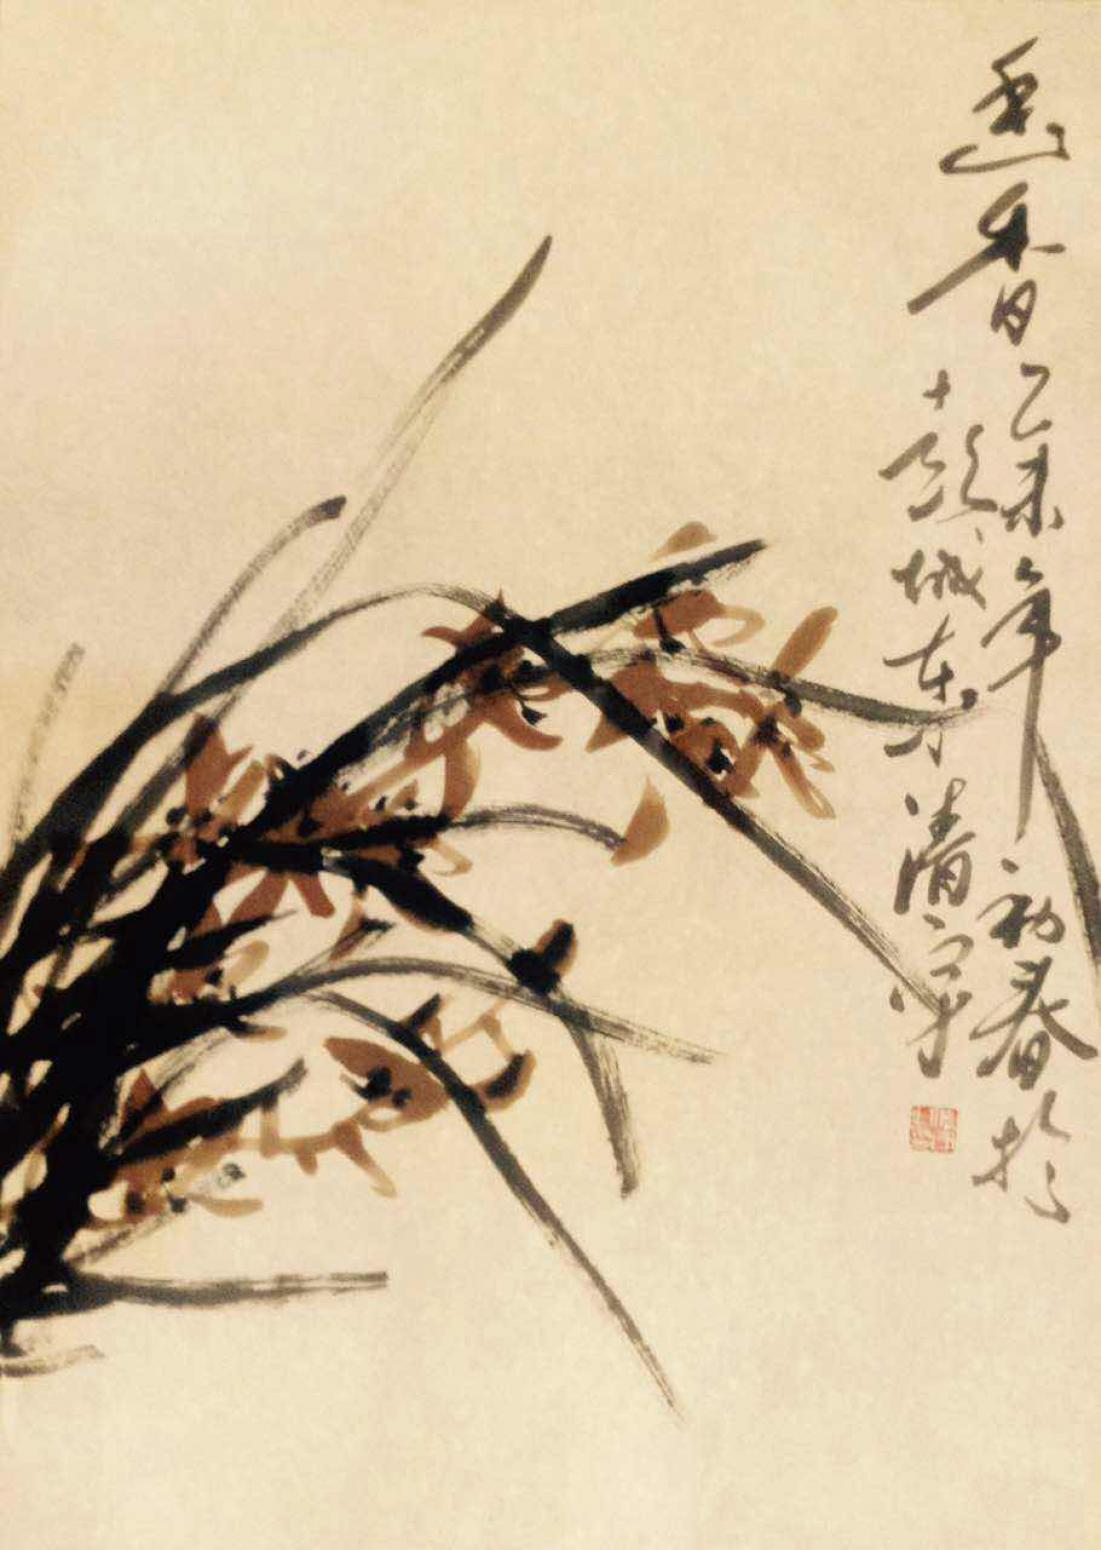 幽香 乙未年初春於
彭城东才清军